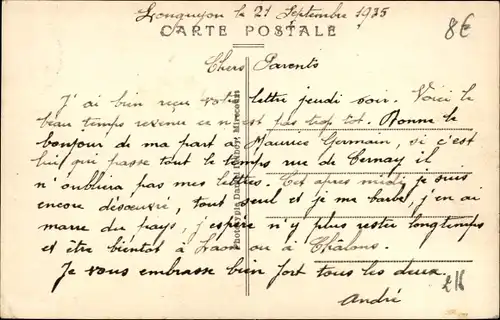 Longuyon le 21 Septembre 1935
CARTE POSTALE
8€
Chers Parents
J'ai bien reçu votre lettre jeudi soir. Voici le
beau temps revenu ce n'est pas trop tot. Donne le
bonjour de ma part a Maurice Germain, si c'est
lui qui passe tout le temps rue de Cernay il
n'oubliera pas mes lettres. Cet après midi je suis
encore désoeuvré, tout seul et je me barbe, j'en ai
marre du pays, j'espère n'y plus rester longtemps
et être bientôt à Laon ou à Châlons.
Je vous embrasse bien fort tous les deux.
André